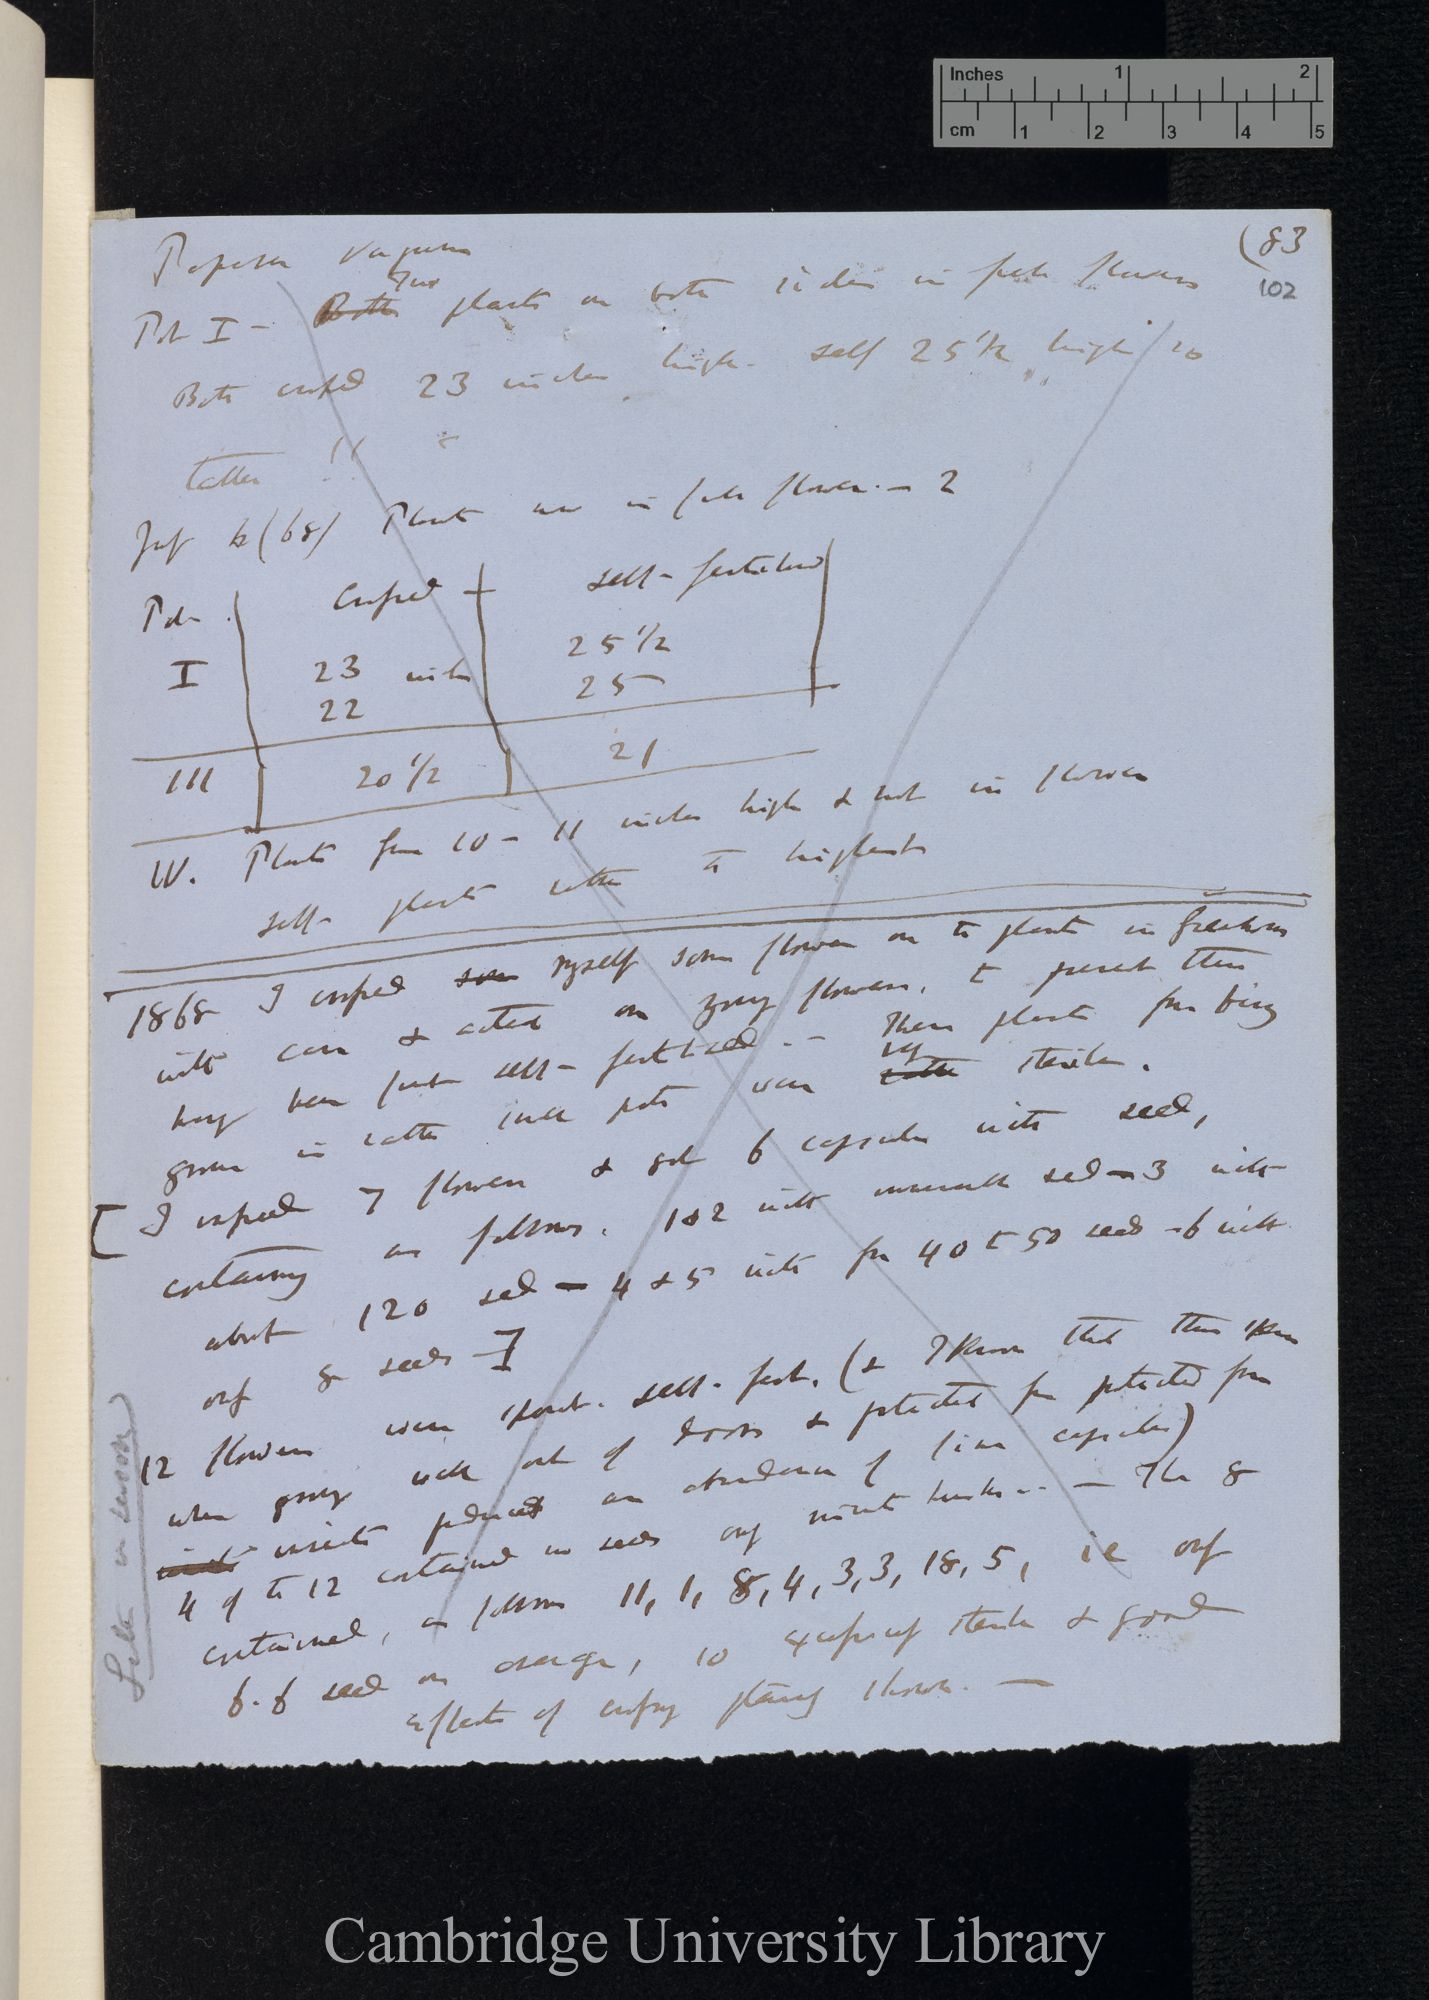 Inches 1 2
cm 1 2 3 4 5
(83
102
Papaver vagum
Pot I — Both Two plants on both sides in full flower
Both crossed 23 inches high. self 25 1/2 high / so
taller !!
July 12 (68) Plants now in full flower. — 2
Pot. Crossed self-fertilised
I 23 inches 25 1/2
22 25
III 20 1/2 21
IV. Plants from 10 – 11 inches high & not in flower
self- plants rather the highest
1868 I crossed some myself some flowers on the plants in Greenhouse
with care & acted on young flowers, to prevent them
having been first self-fertilised. — These plants from being
grown in rather small pots were rather very sterile.
[ I crossed 7 flowers & got 6 capsules with seed,
containing as follows. 1 & 2 with seed — 3 with
about 120 seed — 4 & 5 with from 40 to 50 seed – 6 with
only 8 seeds — ]
12 flowers were spont. self-fert. (& I know that this
when growing well out of doors & protected from protected from
insects insects produces an abundance of fine capsules)
4 of the 12 contained no seeds only minute husks.. — The 8
contained, as follows 11, 1, 8, 4, 3, 3, 18, 5, ie only
6.6 seed on average, so sterile & good
effects of crossing plainly shown. —